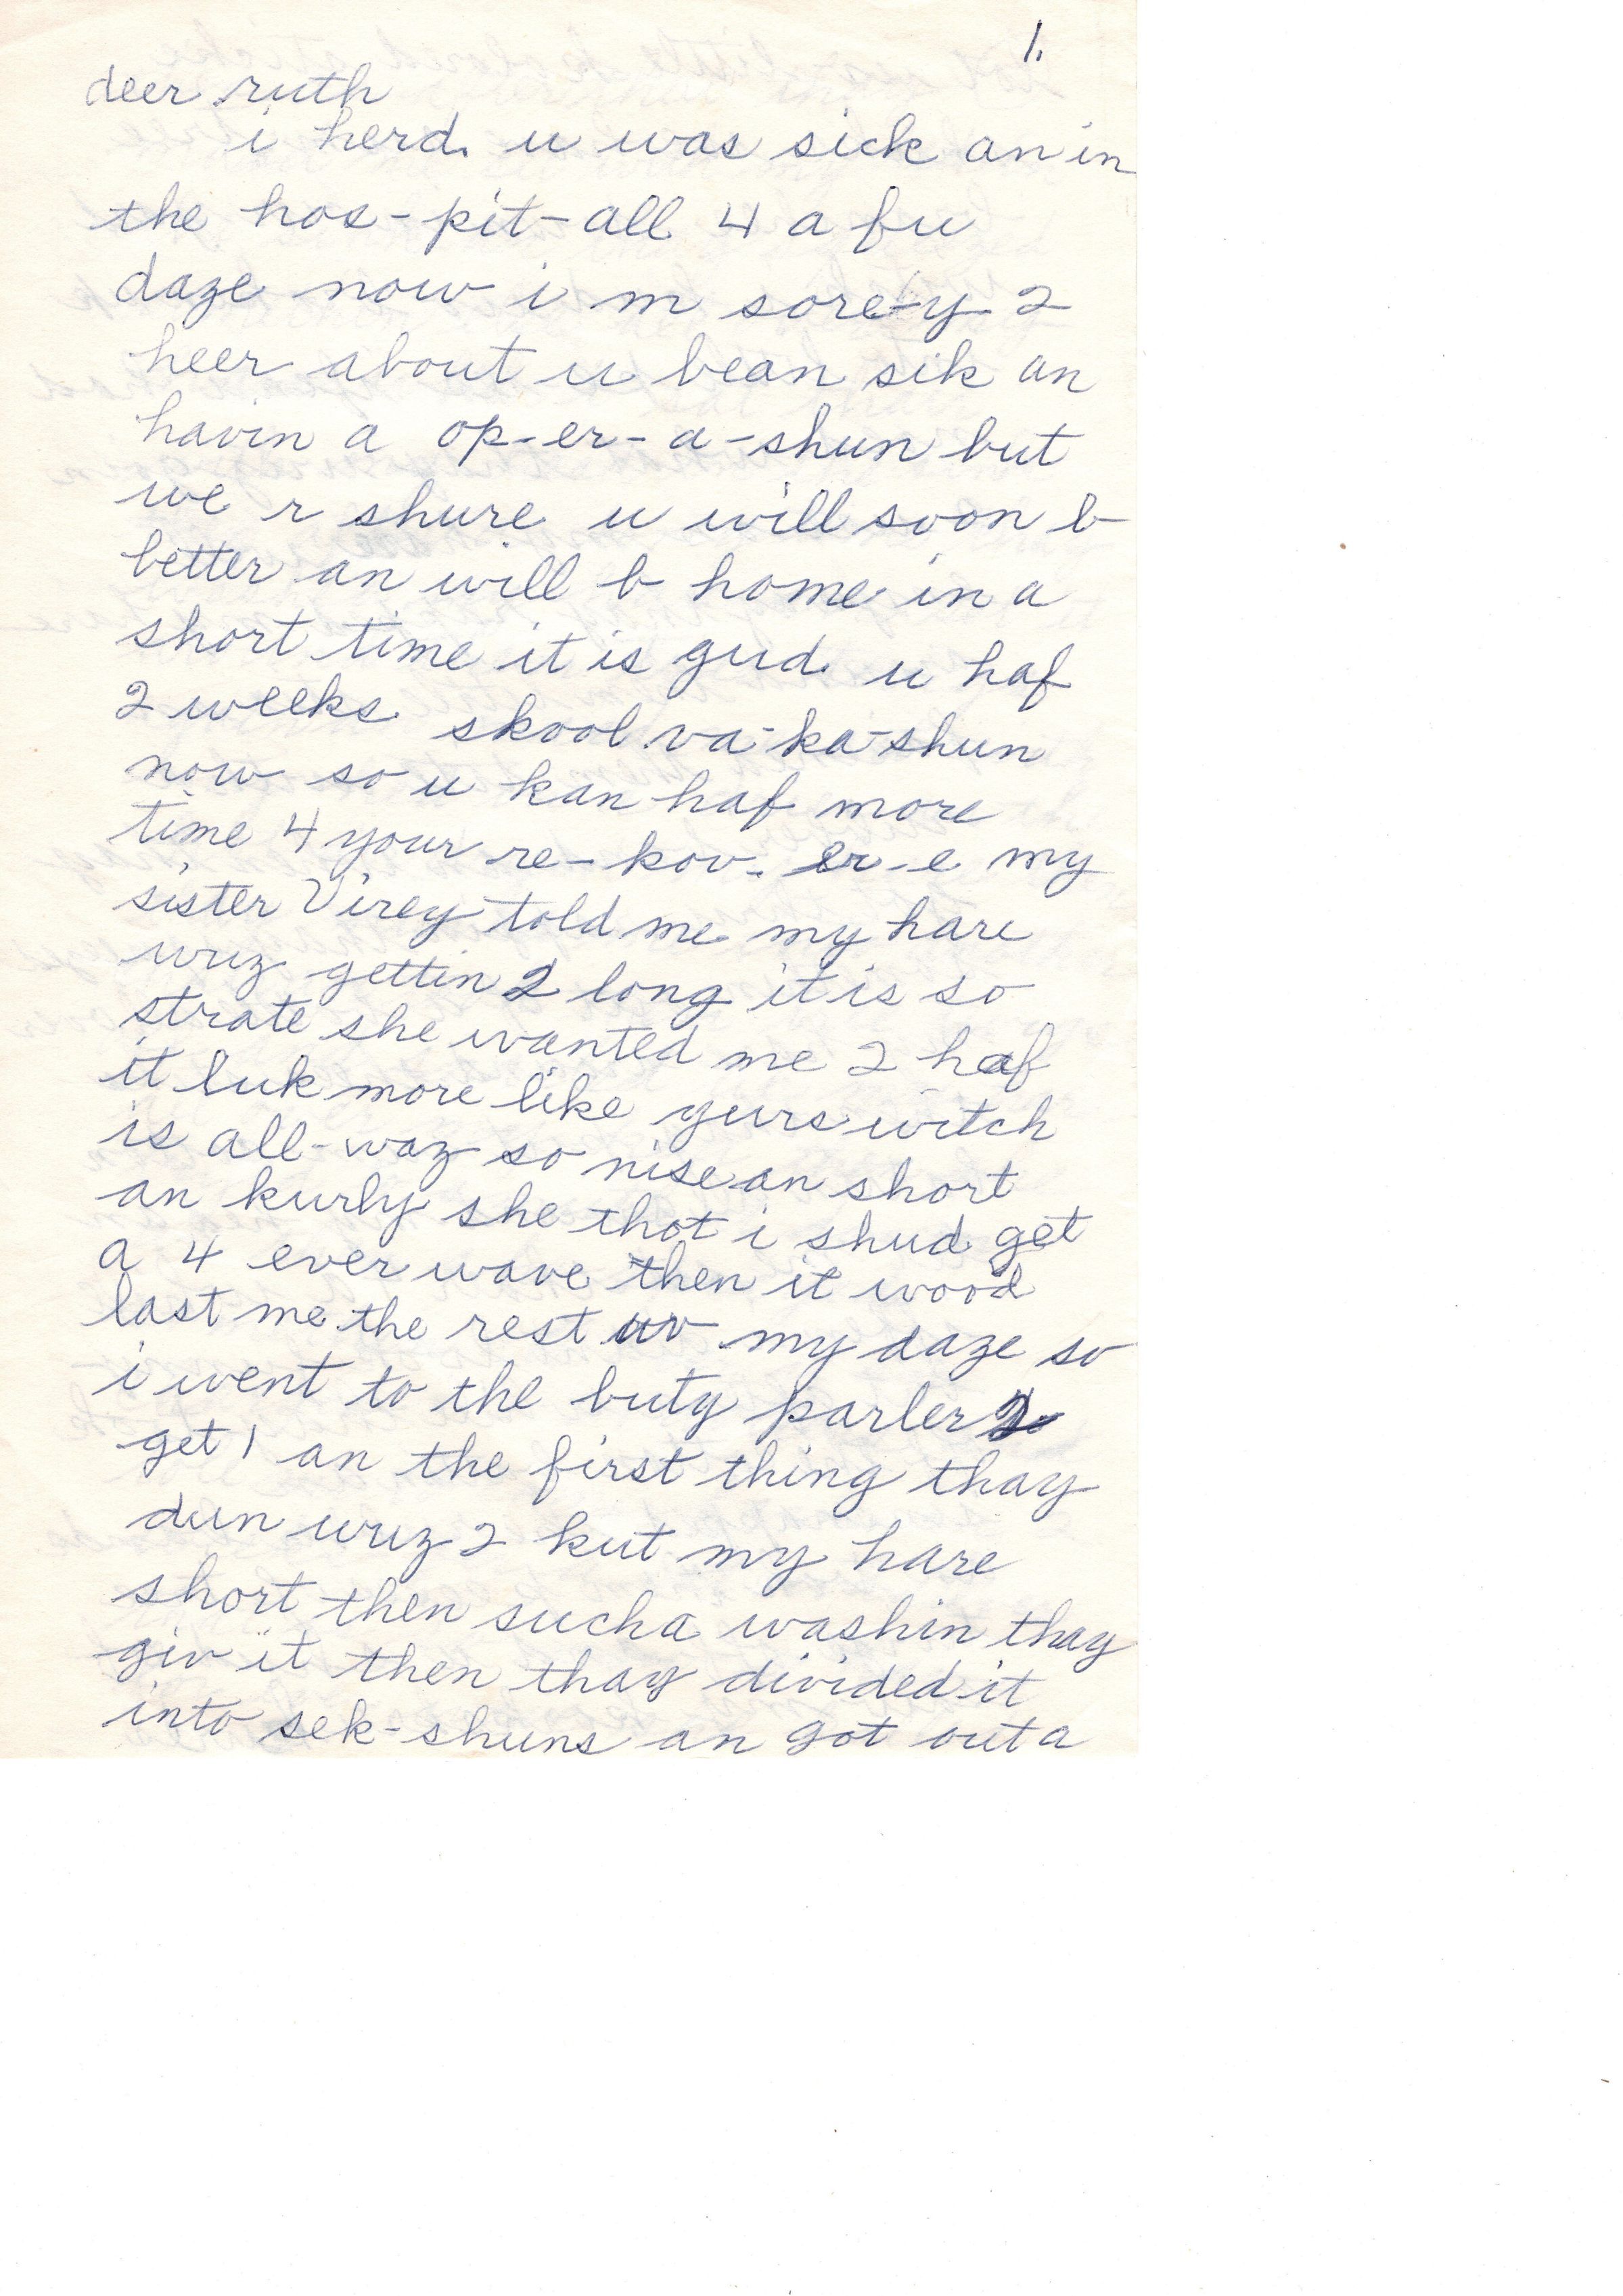 1.
deer ruth
i herd. u was sick an in
the hos-pit-all 4 a fu
daze now i m sore-y 2
heer about u bean sik an
havin a op-er-a-shun but
we r shure u will soon b
better an will b home in a
short time it is gud u haf
2 weeks skool va-ka-shun
now so u kan haf more
time 4 your re-kov-er-e my
sister Virey told me my hare
wuz gettin 2 long it is so
strate she wanted me 2 haf
it luk more like yurs witch
is all-waz so nise an short
an kurly she thot i shud get
a 4 ever wave then it wood
last me the rest uv my daze so
i went to the buty parler 2
get 1 an the first thing thay
dun wuz 2 kut my hare
short then such a washin thay
giv it then thay divided it
into sek-shuns an got out a